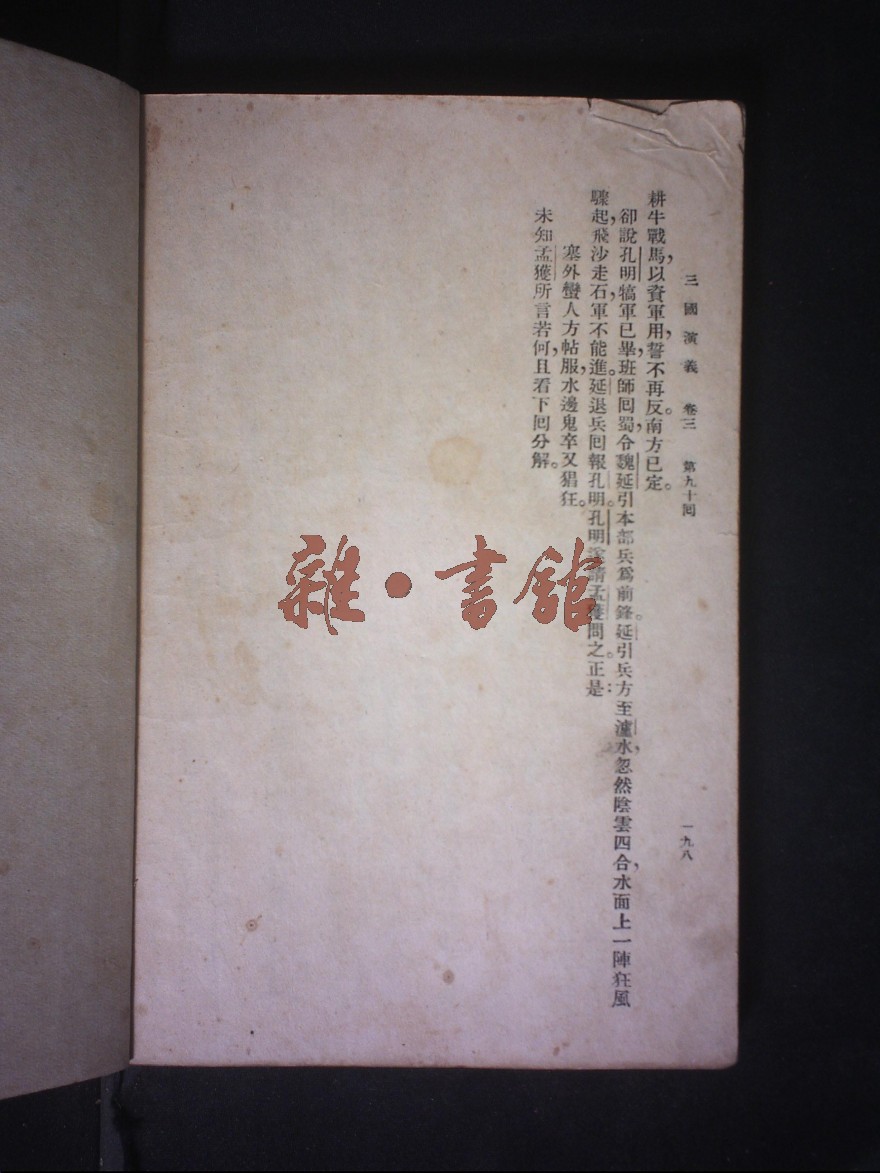 三國演義 卷三 第九十回 一九八
耕牛戰馬，以資軍用，誓不再反。南方已定。
卻說孔明犒軍已畢，班師回蜀，令魏延引本部兵爲前鋒。延引兵方至瀘水，忽然陰雲四合，水面上一陣狂風
驟起，飛沙走石，軍不能進。延退兵回報孔明。孔明遂請孟獲問之。正是：
塞外蠻人方帖服，水邊鬼卒又猖狂。
未知孟獲所言若何，且看下回分解。
雜·書館